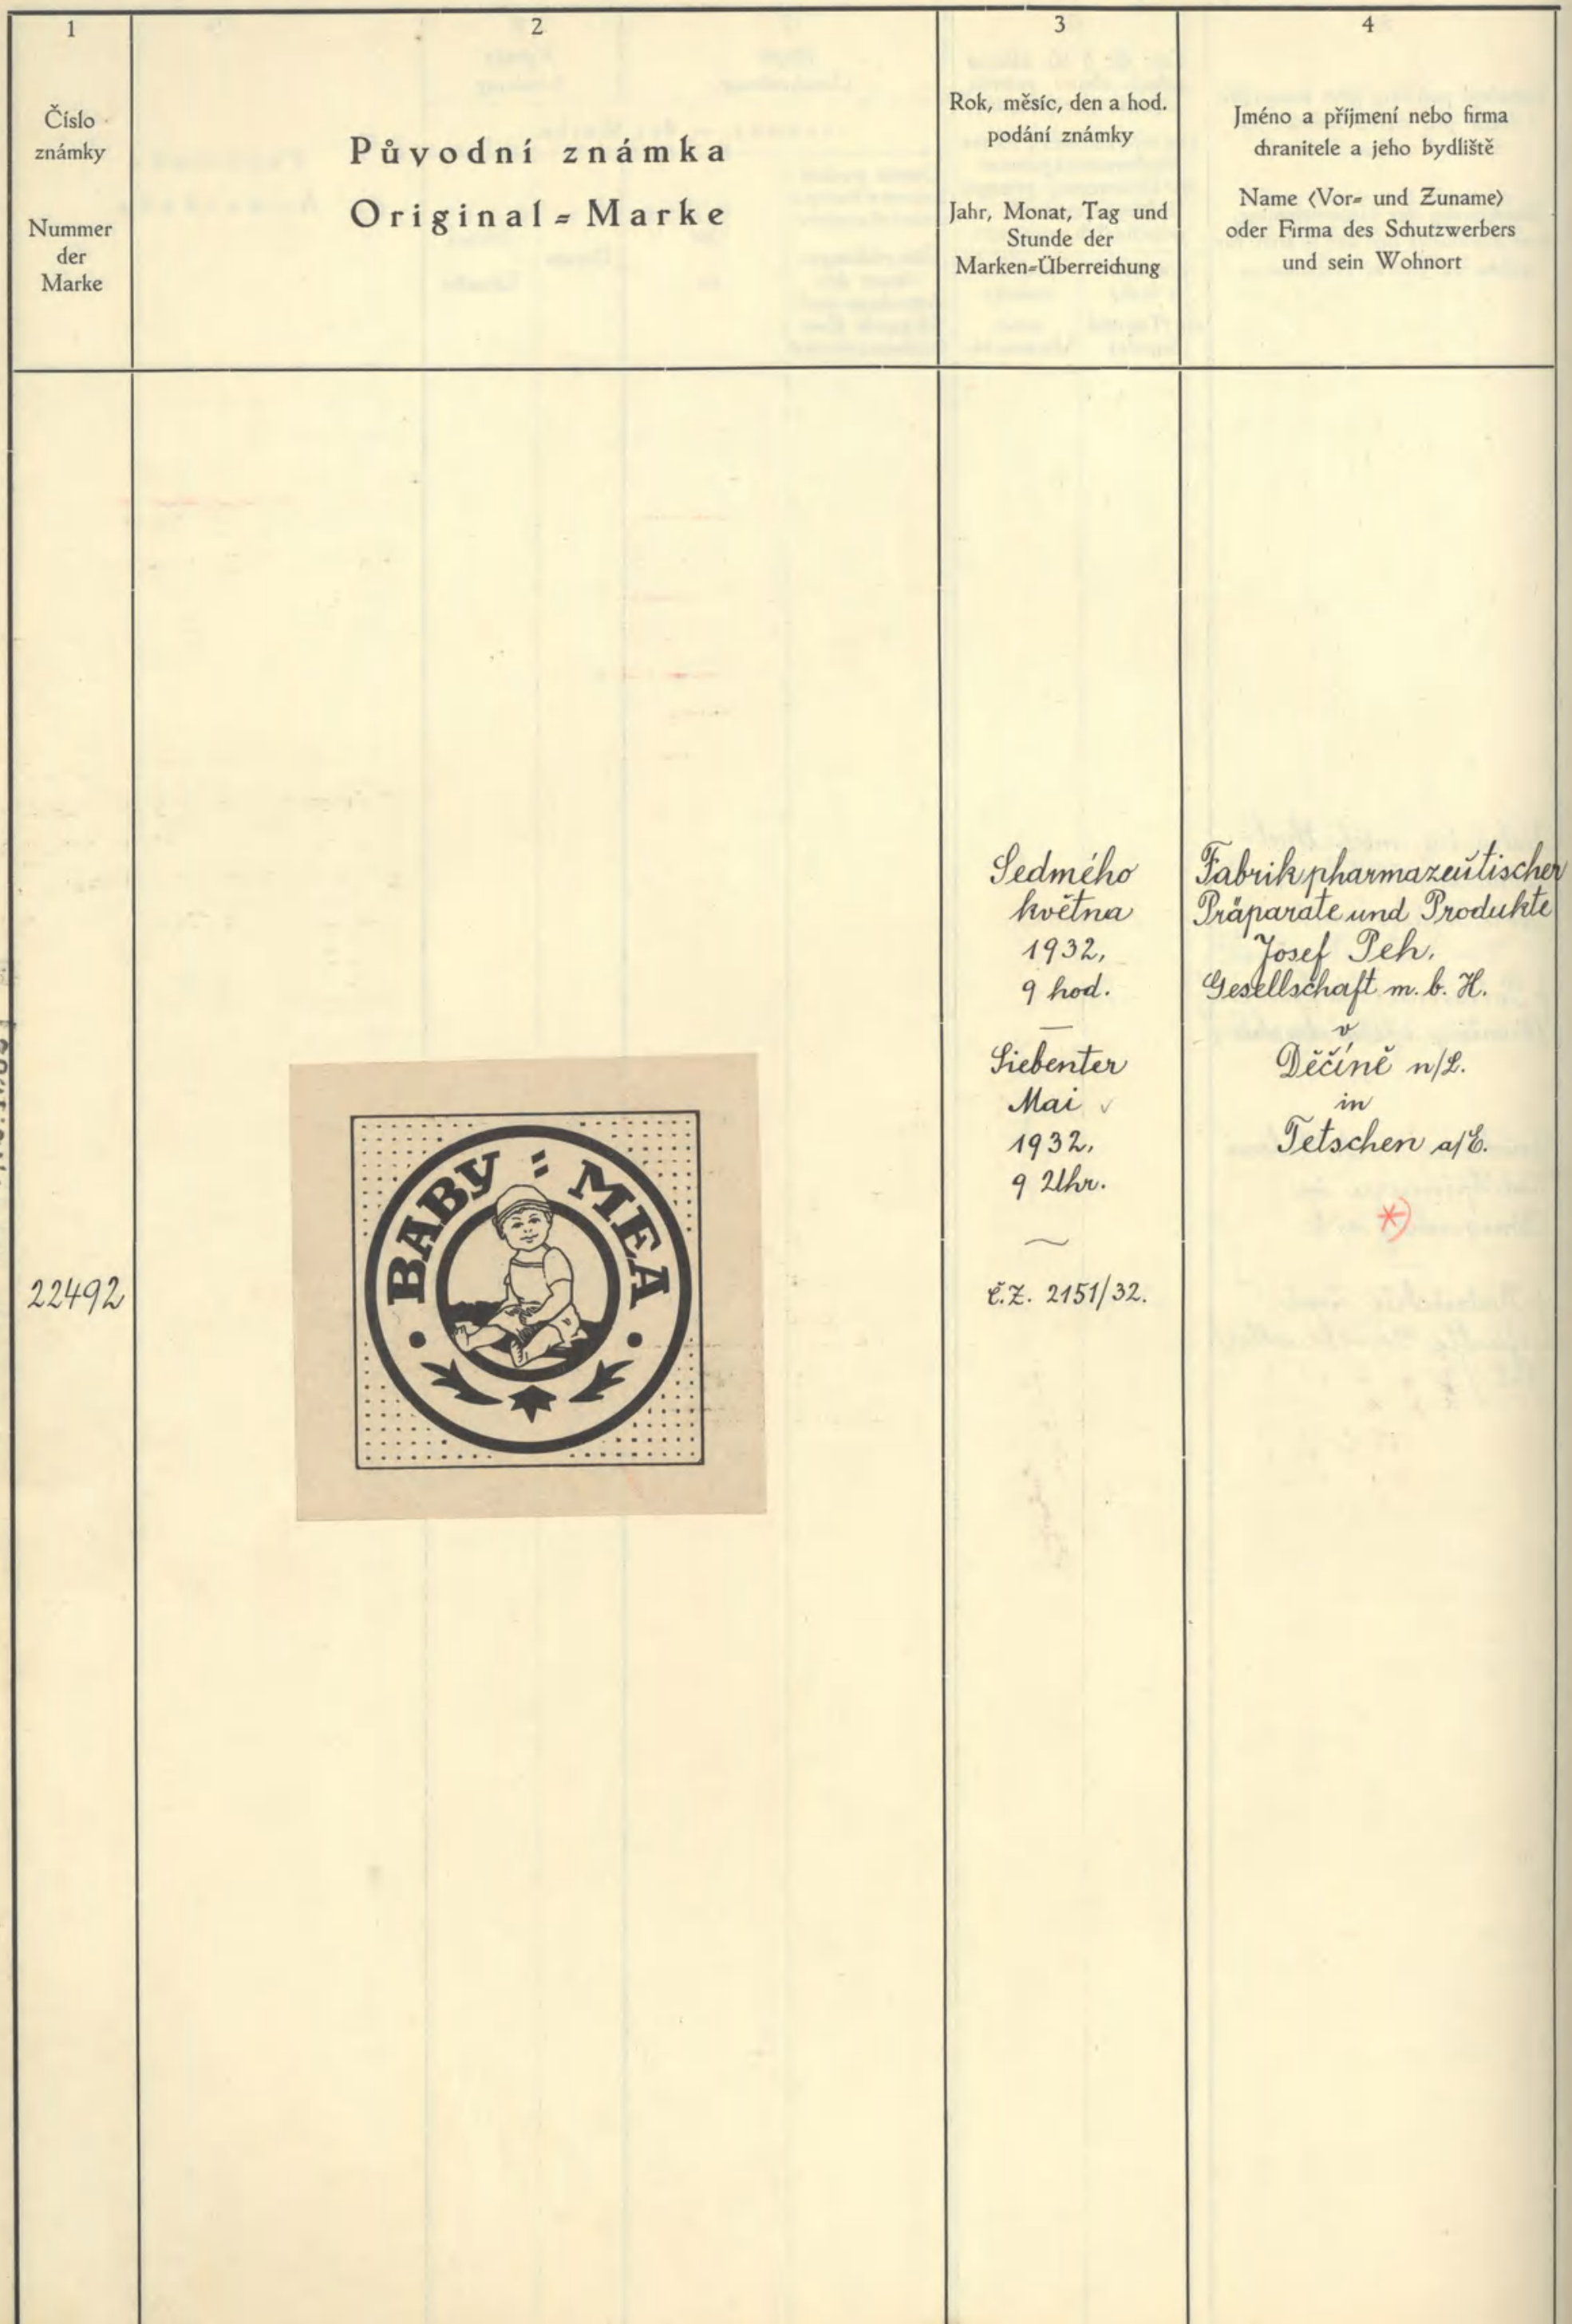 1
Číslo
známky
Nummer
der
Marke
2
Původní známka
Original=Marke
3
Rok, měsíc, den a hod.
podání známky
Jahr, Monat, Tag und
Stunde der
Marken=Überreichung
4
Jméno a příjmení nebo firma
chranitele a jeho bydliště
Name (Vor= und Zuname)
oder Firma des Schutzwerbers
und sein Wohnort
22492
BABY = MEA
Sedmého
května
1932,
9 hod.
—
Siebenter
Mai ✓
1932.
9 Uhr.
~
č.Z. 2151/32.
Fabrik pharmazeutischer
Präparate und Produkte
Josef Peh.
Gesellschaft m. b. H.
v
Děčíně n/L.
in
Tetschen a/E.
*)